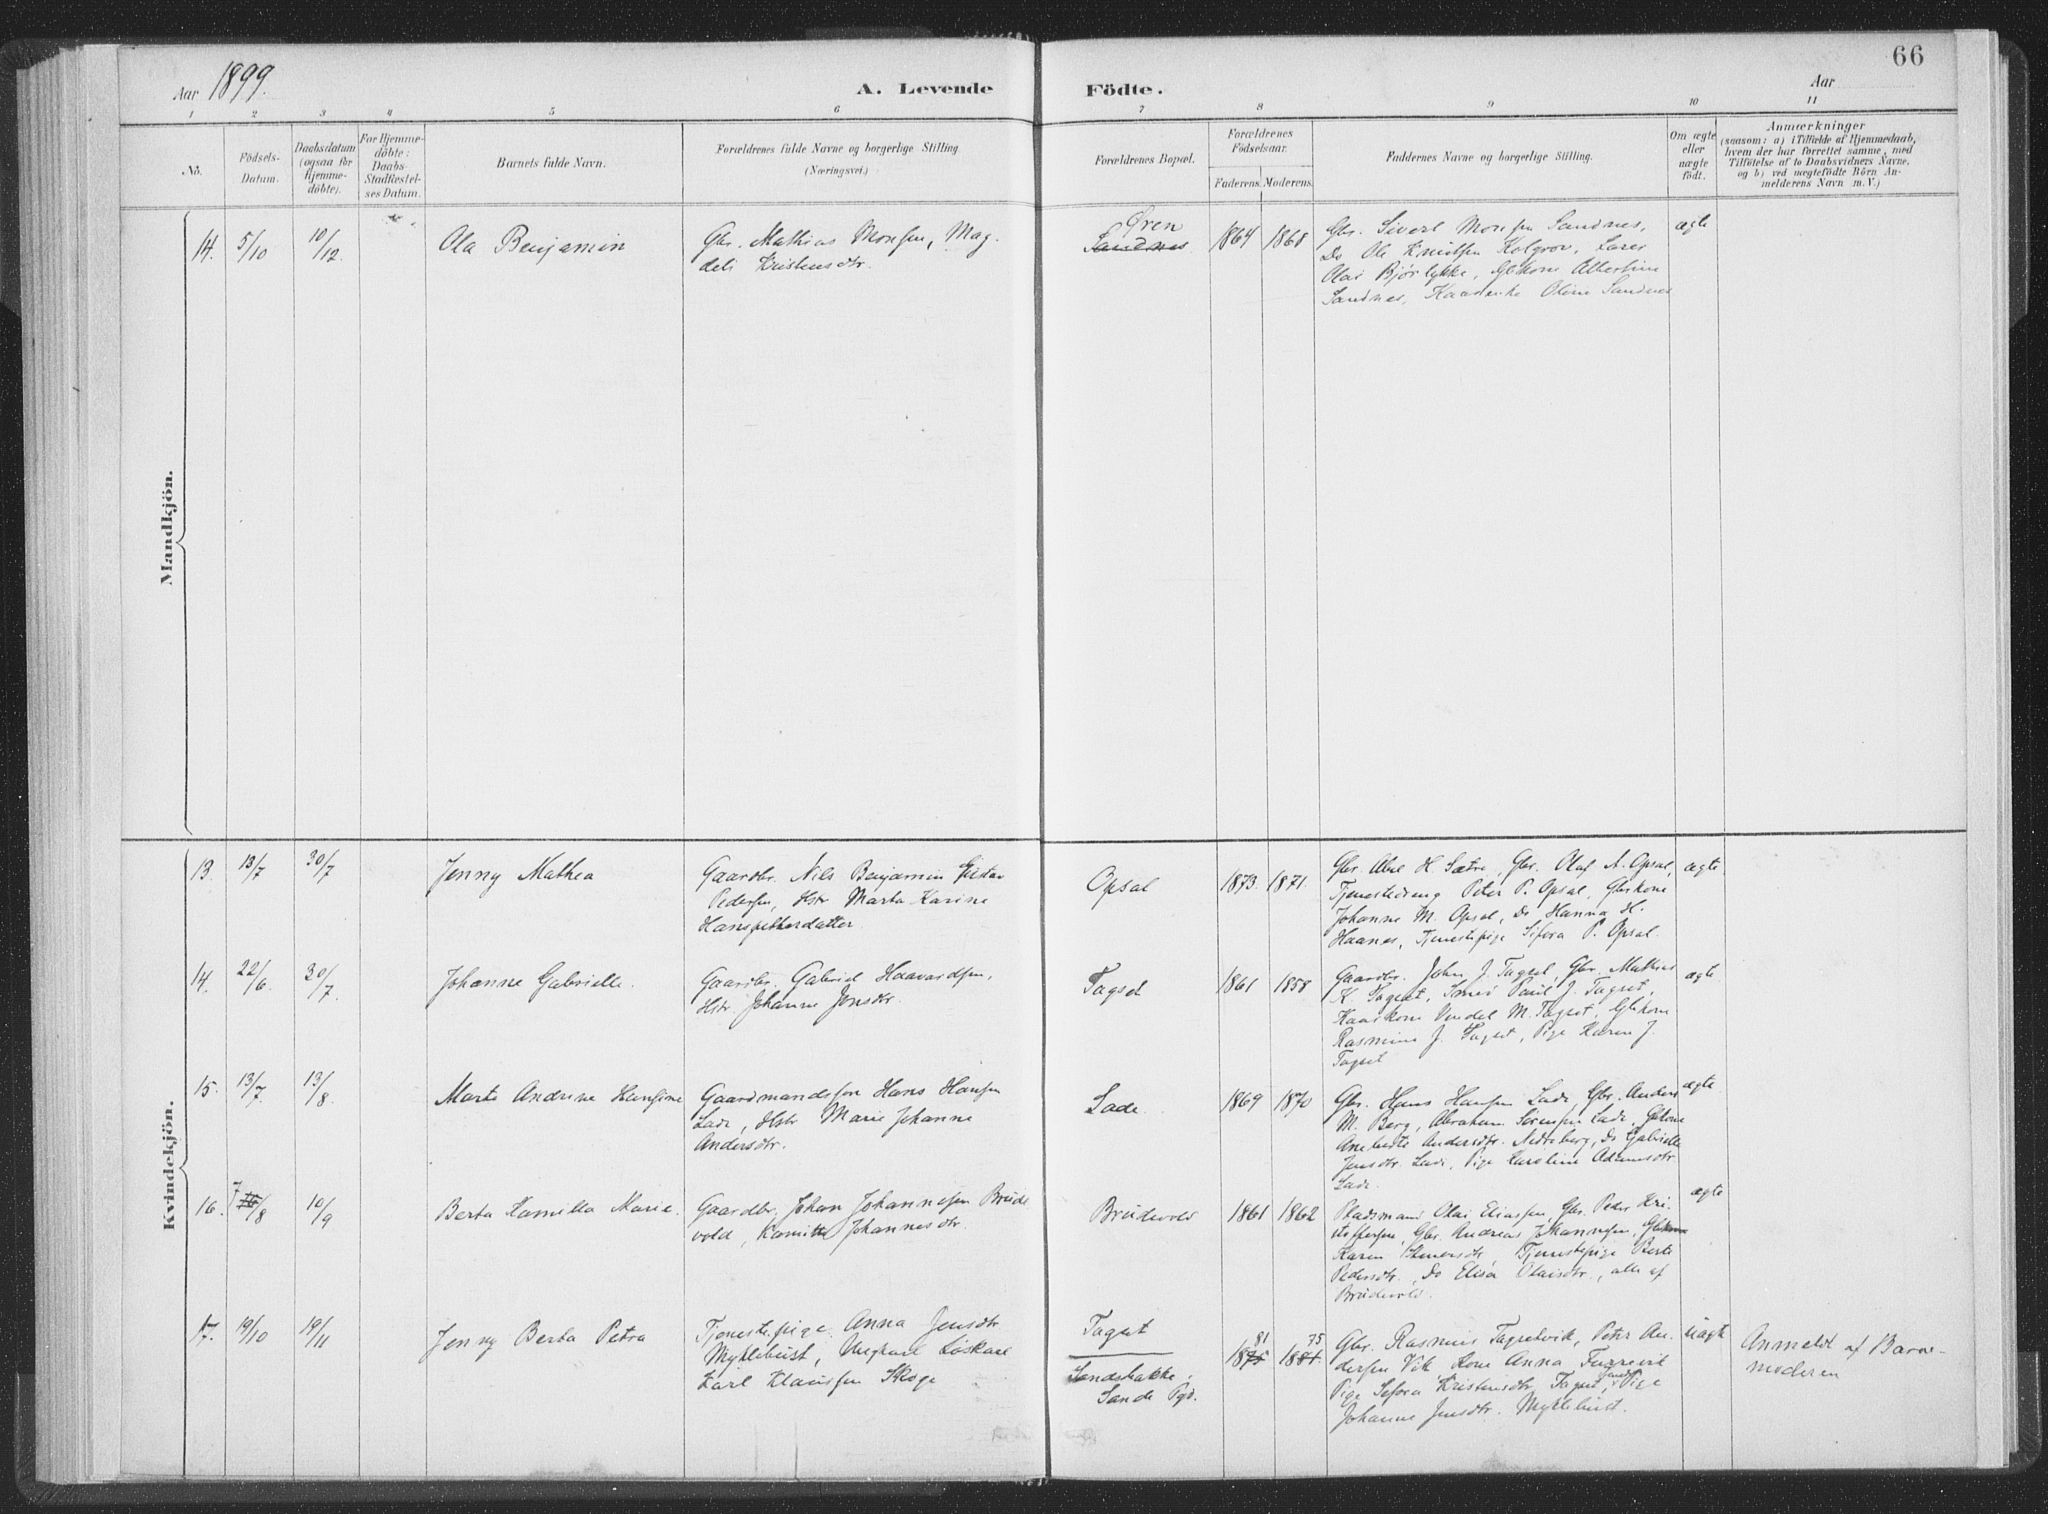 66
Aar 1899.
A. Levende Födte.
Aar
1 2 3 4 5 6 7 8 9 10 11
No.
Födsels-Datum.
Daabsdatum (ogsaa for Hjemme-döbte).
For Hjemme-döbte: Daabs-Stadfæstel-ses Datum.
Barnets fulde Navn.
Forældrenes fulde Navne og borgerlige Stilling. (Næringsvei.)
Forældrenes Bopæl.
Forældrenes Födselsaar.
Faderens. Moderens.
Faddernes Navne og borgerlige Stilling.
Om ægte eller uægte födt.
Anmærkninger
(saasom: a) i Tilfælde af Hjemmedaab,
hvem der har forrettet samme, med
Tilföielse af to Daabsvidners Navne,
og b) ved uægtefödte Börn An-
melderens Navn m. V.)
Mandkjön.
14. 5/10 10/12. Ola Benjamin
Gbr. Mathias Monsen, Mag-
deli Kristensdtr.
Øren
Sandnes
1864 1868
Gbr. Sivert Monsen Sandnes,
Do Ole Knutsen Kolgrov, Lærer
Olai Bjørlykke, Gbkone Albertine
Sandnes, Kaarenke Oline Sandnes
ægte
Kvindekjön.
13. 13/7 30/7 Jenny Mathea
Gaardbr. Nils Benjamin Gustav
Pedersen, Hstr Marta Karine
Hanspettersdatter
Opsal
1873. 1871.
Gbr. Abel H. Sætre, Gbr. Olaf A. Opsal,
Tjenestedreng Peter P. Opsal, Gbkone
Johanne M. Opsal, Do Hanna H.
Haanes, Tjenestepige Sifora P. Opsal.
ægte
14. 22/6. 30/7. Johanne Gabrielle.
Gaardbr. Gabriel Haavardsen,
Hstr Johanne Jonsdtr.
Tagset
1861 1858
Gaardbr. John J. Tagset, Gbr. Mathias
K. Tagset, Smed Paul J. Tagset,
Kaarkone Vendel M. Tagset, Gbkone
Rasmine J. Tagset, Pige Karen J.
Tagset
ægte
15. 13/7. 13/8. Marte Andrine Hansine
Gaardmandssøn Hans Hansen
Lade, Hstr Marie Johanne
Andersdtr.
Lade.
1869 1870
Gbr. Hans Hansen Lade, Gbr. Anders
M. Berg, Abraham Sørensen Lade, Gbkone
Andersdtr. Nedreberg, Do Gabrielle
Jensdtr. Lade, Pige Karoline Adamsdtr.
Lade.
ægte
16. 7 16/8 10/9 Berta Kamilla Marie.
Gaardbr. Johan Johannesen Brude-
vold, Kamilla Johannesdtr.
Brudevold
1861 1862
Pladsmand Olai Eliassen, Gbr. Peder Kri-
stoffersen, Gbr. Andreas Johannesen, Gbkone
Karen Stenersdtr Tjenestepige Berte
Pedersdtr., Do Elisa Olaisdtr., alle af
Brudevold.
ægte
17. 19/10 19/11 Jenny Berta Petra
Tjenestepige Anna Jensdtr.
Myklebust, Ungkarl Løskarl
Karl Klausen Skoge
Tagset
Sandsbakke,
Sande Pgd.
81 75
1875 1881
Gbr. Rasmus Tagsetvik, Peter An-
dersen Vik, Kone Anna
Pige Sefora Kristensdtr. Tagset, Pige
Johanne Jensdtr. Myklebust.
uægt
Anmeldt af Barne-
moderen